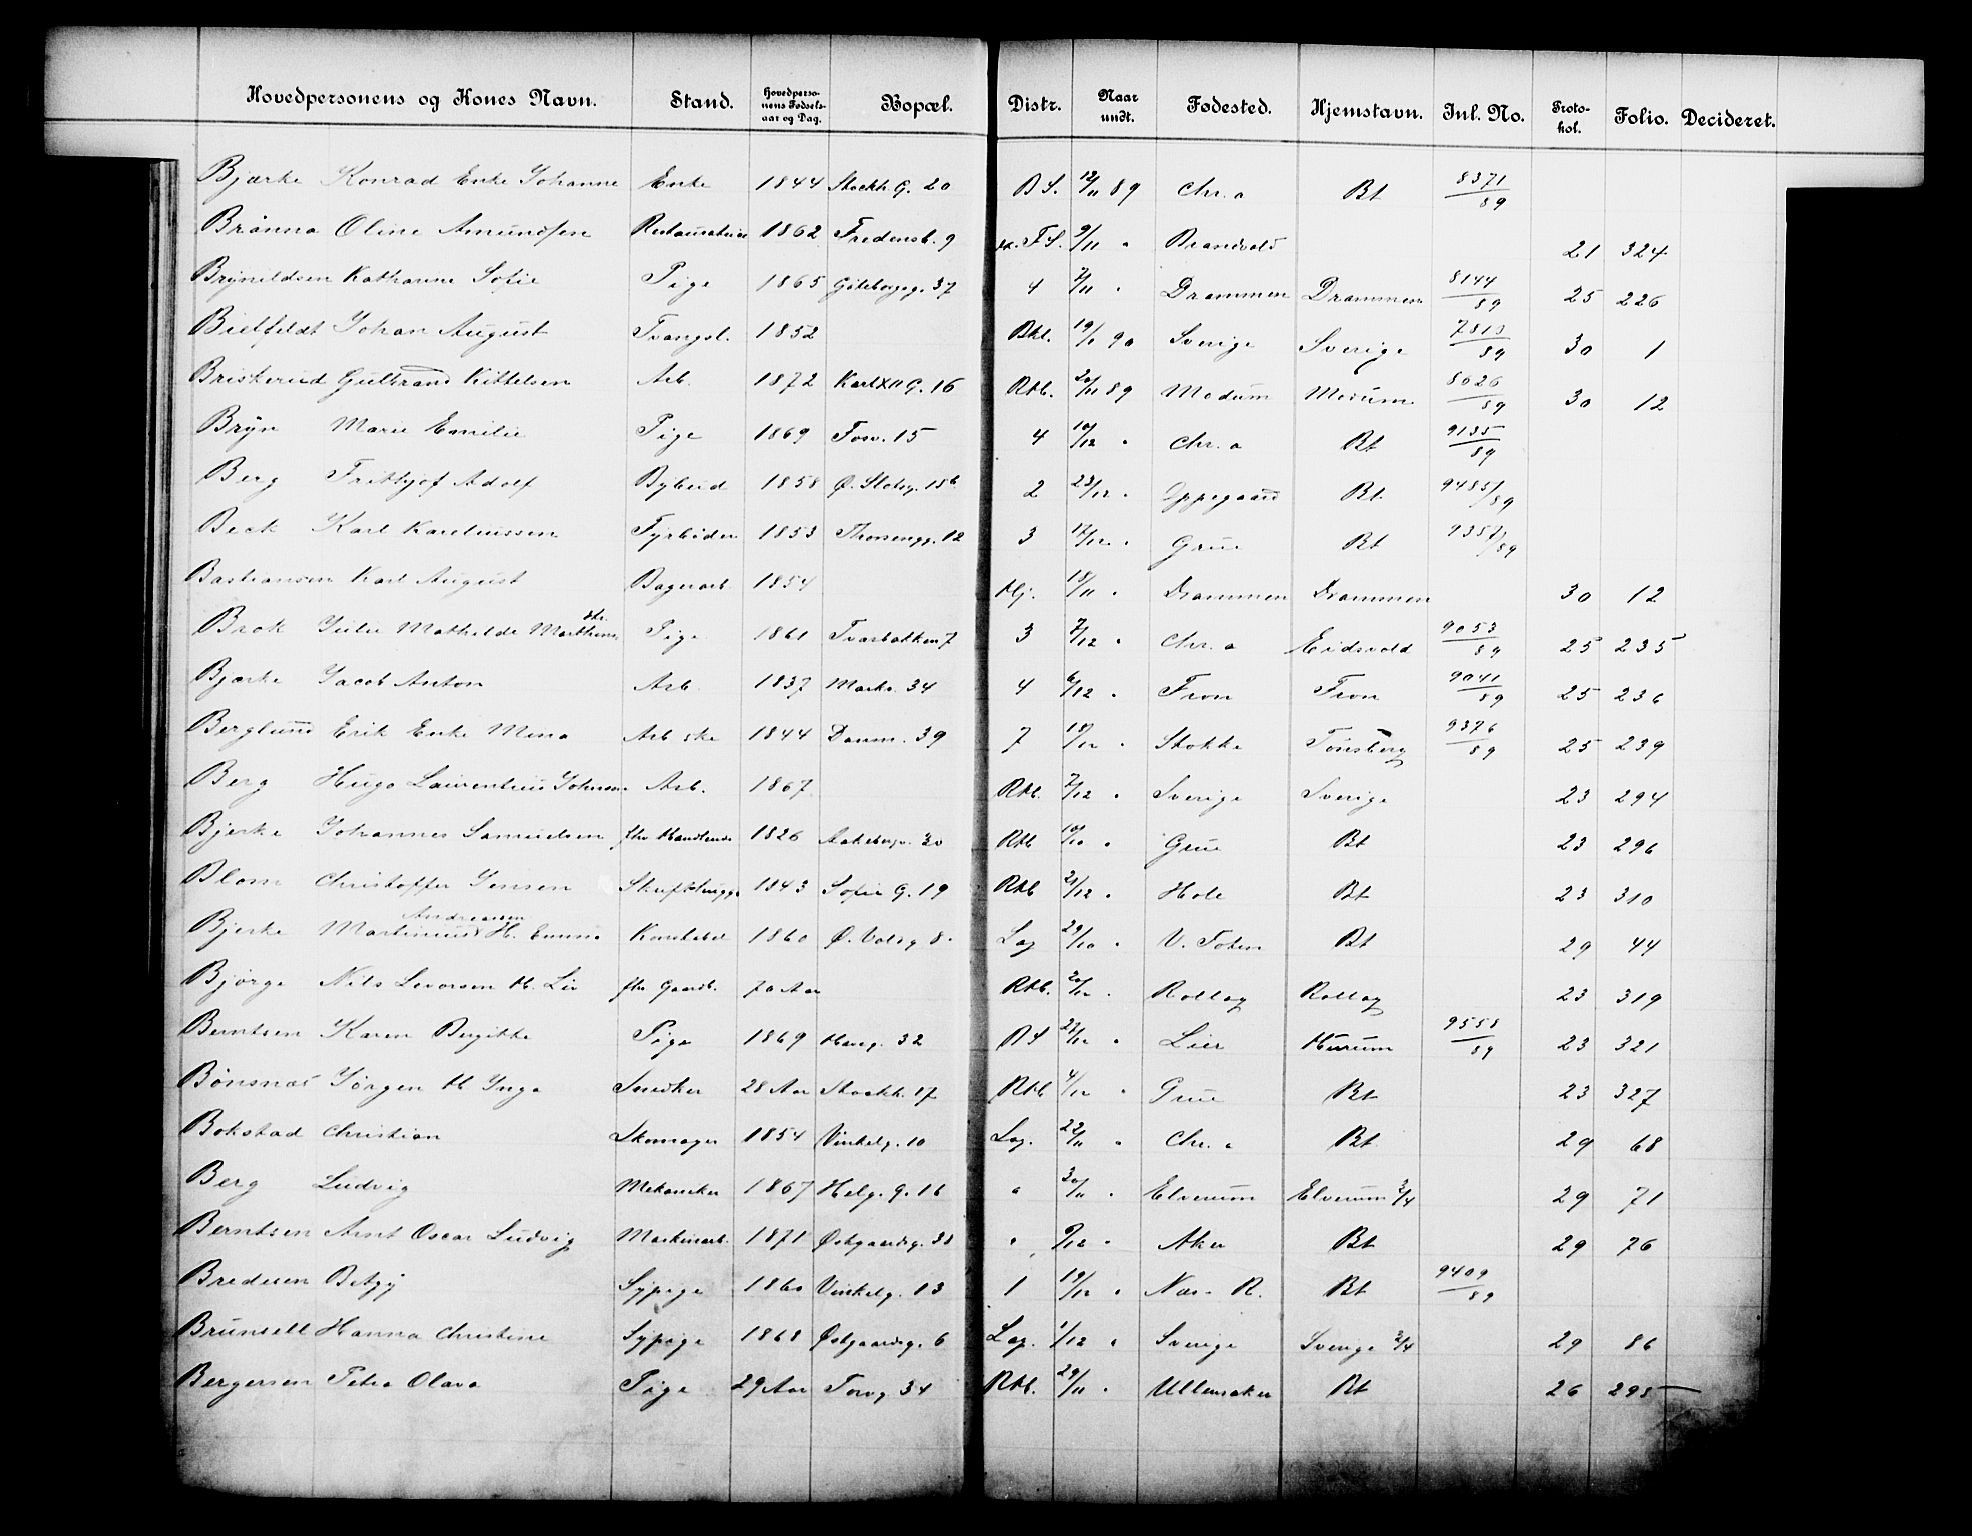 Hovedpersonens og Kones Navn. Stand. Hovedpersonens Fødselsaar og Dag. Bopæl. Distr. Naar undt. Fødested. Hjemstavn. Inl. No. Protokol. Folio. Decideret.
Bjærke Konrad Enke Johanne Enke 1844 Stockh. G. 20 B S. 12/11 89 Chr.a Bt 8371/89
Brønna Oline Amundsen 1862 Fredensb. 9 F S. 9/11 " Brandvold 21 324
Brynildsen Katharine Sofie Pige 1865 Göteborgg. 37 4 7/11 " Drammen Drammen 8144/89 25 226
Bielfeldt Johan August Tvangsl. 1852 Bkl. 90 Sverige Sverige 30 1
Briskerud Gulbrand Kittelsen Arb. 1872 Karl XII G. 16 Rkb. 20/11 89 Modum Modum 8626/89 30 12
Bryn Marie Emilie Pige 1869 Fosv. 15 4 10/12 " Chr.a Bt 9135/89
Berg Frithjof Adolf Bybud 1858 Ø. Slotsg. 15b 2 23/12 " Oppegaard Bt 9485/89
Beck Karl Kareliussen Fyrbøder 1853 Thorsengg. 12 3 " Grue Bt 9357/89
Bastiansen Karl August Bagerarb. 1854 Hj. 18/11 " Drammen Drammen 30 12
Brok Julie Mathilde Marthine dtr. Pige 1861 Tvarbakken 7 3 7/12 " Chr.a Eidsvold 9053/89 25 235
Bjærke Jacob Anton Arb. 1837 Markv. 34 4 6/12 " Fron Fron 9041/89 25 236
Berglund Erik Enke Mina Arb ske 1844 Danm. 39 7 " Stokke Tønsberg 9376/89 25 239
Berg Hugo Laurentius Johnsen Arb. 1867 Rkb. 7/12 " Sverige Sverige 23 294
Bjerke Johannes Samuelsen fhv Handlende 1826 Aakebergv. 30 Rkb 10/10 " Grue Bt 23 296
Blom Christoffer Jensen 1843 Sofie G. 19 Rkb 21/12 " Hole Bt 23 310
Bjerke Martinius Andreasen H. Emma Konstabel 1860 Ø. Volsg. 8 Lag 29/10 " V. Toten Bt 29 44
Bjørge Nils Levorsen H. Liv fhv Gaardb. 70 Aar Rkb. 20/12 " Rollag Rollag 23 319
Berntsen Karen Birgitte Pige 1869 Haug. 32 B S 28/12 " Lier Hurum 9558/89 23 321
Bønsnæs Jørgen H Inga Snedker 28 Aar Stockh. 17 Rkb 4/12 " Grue Bt 23 327
Bokstad Christian Skomager 1854 Vinkelg. 10 Lag. 22/11 " Chr.a Bt 29 68
Berg Ludvig Mekaniker 1867 Helg. G. 16 " 30/11 " Elverum Elverum 3/4 29 71
Berntsen Arnt Oscar Ludvig Maskinarb. 1871 Østgaardsg. 38 " 9/12 " Aker Bt 29 76
Bredesen Betzy Sypige 1860 Vinkelg. 13 1 19/12 " Næs R. Bt 9409/89
Brunsell Hanna Christine Sypige 1868 Østgaardsg. 6 Lag. 1/12 " Sverige Sverige 3/4 29 86
Bergersen Petra Olava Pige 29 Aar Torvg 34 Rkb. 29/11 " Ullensaker Bt 26 295